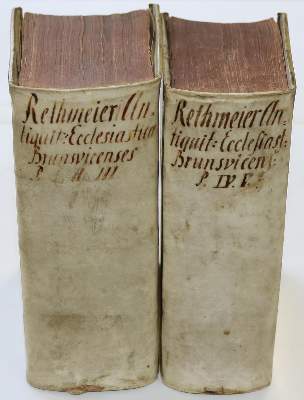 Rethmeier An-
tiquit: Ecclesiasticæ
Brunsvicenses
P. I. II. III
Rethmeier An-
tiquit: Ecclesiast:
Brunsvicens:
P. IV. V.